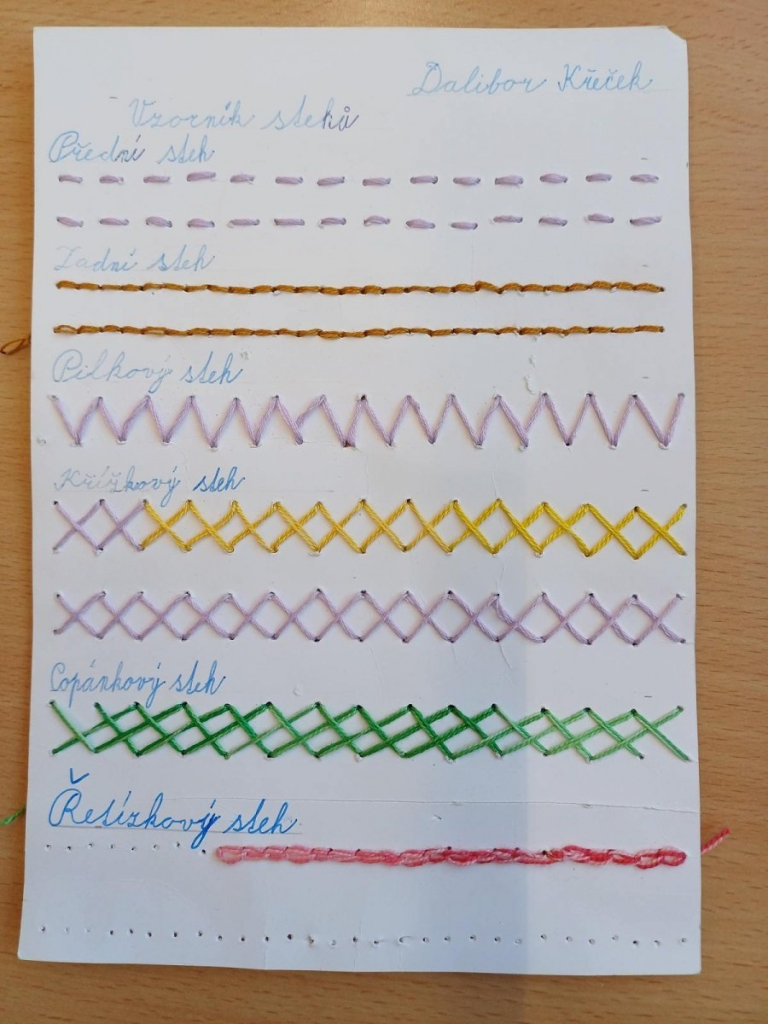 Dalibor Křeček
Vzorník stehů
Přední steh
Zadní steh
Pilkový steh
Křížkový steh
Copánkový steh
Řetízkový steh